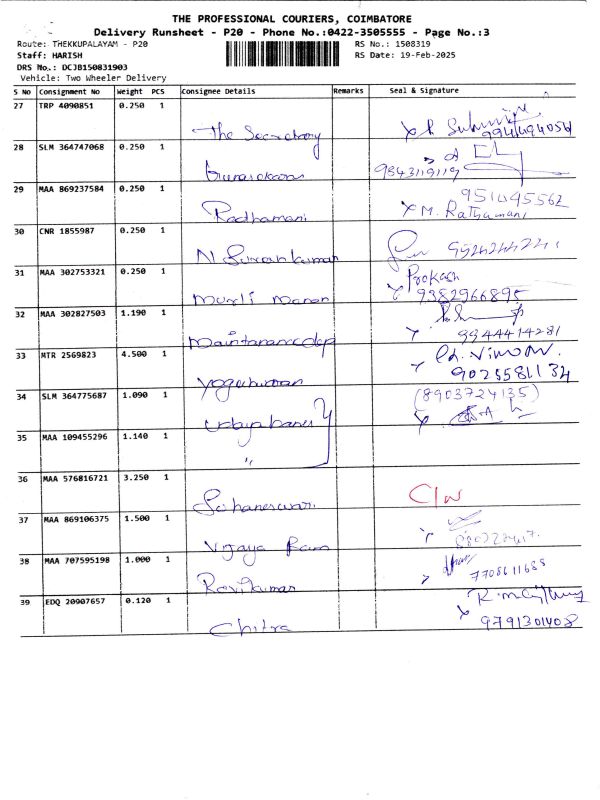 THE PROFESSIONAL COURIERS, COIMBATORE
Delivery Runsheet - P20 - Phone No.:0422-3505555 - Page No.:3
Route: THEKKUPALAYAM - P20 RS No.: 1508319
Staff: HARISH RS Date: 19-Feb-2025
DRS No.: DCJB150831903
Vehicle: Two Wheeler Delivery
S No Consignment No Weight PCS Consignee Details Remarks Seal & Signature
27 TRP 4090851 0.250 1
The Secretary
28 SLM 364747068 0.250 1
9843119119
29 MAA 869237584 0.250 1
Radhamani M. Rathamani
30 CNR 1855987 0.250 1
N Sivan kumar
31 MAA 302753321 0.250 1 Prokash
Murli Manor 9382966895
32 MAA 302827503 1.190 1
9944414281
33 MTR 2569823 4.500 1
9025581134
34 SLM 364775687 1.090 1 (8903724135)
35 MAA 109455296 1.140 1
"
36 MAA 576816721 3.250 1
C/W
37 MAA 869106375 1.500 1
Vijaya Ram
38 MAA 707595198 1.000 1
Ravikumar 7708611688
39 EDQ 20907657 0.120 1
Chitra 9791301408